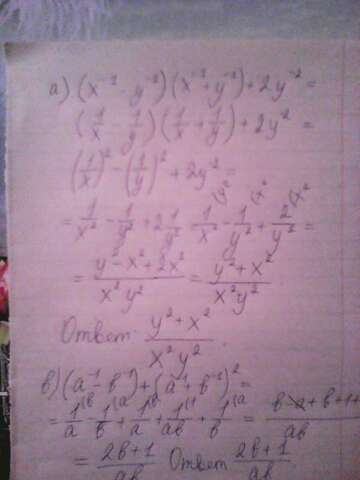 а) (x⁻¹ - y⁻¹)(x⁻¹ + y⁻¹) + 2y⁻² =
(1/x - 1/y)(1/x + 1/y) + 2y⁻² =
(1/x)² - (1/y)² + 2y⁻² =
= 1/x² - 1/y² + 2 1/y² 1/x² - 1/y² + 2/y² =
= (y² - x² + 2x²)/(x² y²) = (y² + x²)/(x² y²)
Ответ (y² + x²)/(x² y²).
в) (a⁻¹ - b⁻¹) + (a⁻¹ + b⁻¹)² =
= 1/a - 1/b + 1/a + 1/ab + 1/b = (b - a + b + 1 +)/ab
= (2b + 1)/ab. Ответ (2b + 1)/ab.